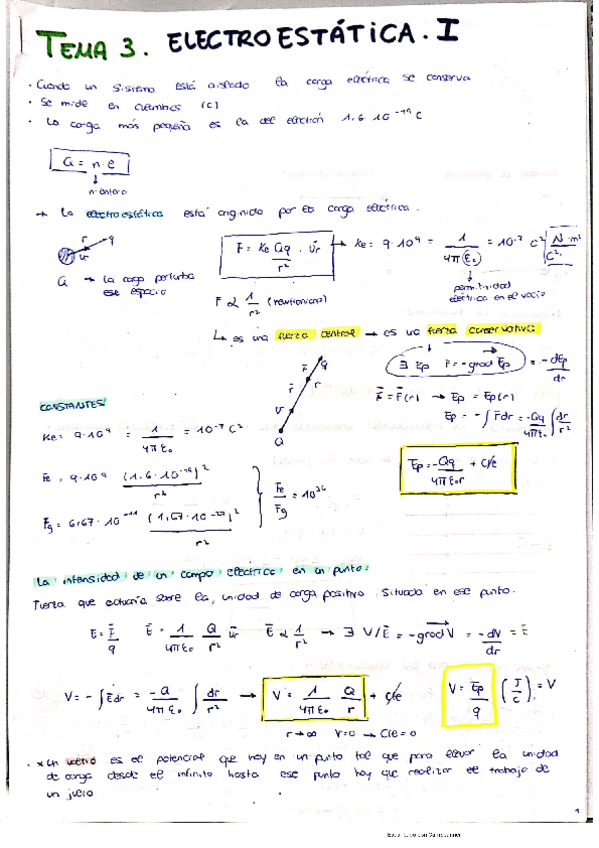 TEMA 3. ELECTROESTÁTICA. I
· Cuando un sistema está aislado la carga eléctrica se conserva
· Se mide en culombios (C)
· La carga más pequeña es la del electrón 1.6·10⁻¹⁹ C
Q = n·e
n entero
→ La electroestática está originida por la carga eléctrica.
r q
ur
Q → la carga perturba ese espacio
F = Ke Qq/r² · ur → Ke = 9·10⁹ = 1/4πε₀ = 10⁻⁷ C² N·m²/C²
permitividad eléctrica en el vacío
F α 1/r² (newtoniana)
↳ es una fuerza central → es una fuerza conservativa
∃ Ep F = -grad Ep = -dEp/dr
F = F(r) → Ep = Ep(r)
Ep = -∫Fdr = -Qq/4πε₀ ∫dr/r²
Ep = -Qq/4πε₀r + Cte
F q
r r
U
Q
CONSTANTES
Ke = 9·10⁹ = 1/4πε₀ = 10⁻⁷ C²
Fe = 9·10⁹ (1.6·10⁻¹⁹)²/r²
Fg = 6,67·10⁻¹¹ (1,67·10⁻²⁷)²/r²
Fe/Fg = 10³⁶
La intensidad de un campo eléctrico en un punto:
Fuerza que actuaría sobre la, unidad de carga positiva situada en ese punto.
E = F/q E = 1/4πε₀ Q/r² ur E α 1/r² → ∃ V/E = -grad V = -dV/dr = E
V = -∫Edr = -Q/4πε₀ ∫dr/r² → V = 1/4πε₀ Q/r + Cte
V = Ep/q (J/C) = V
r→∞ V=0 → Cte = 0
* Un voltio es el potencial que hay en un punto tal que para llevar la unidad
de carga desde el infinito hasta ese punto hay que realizar el trabajo de
un julio
1